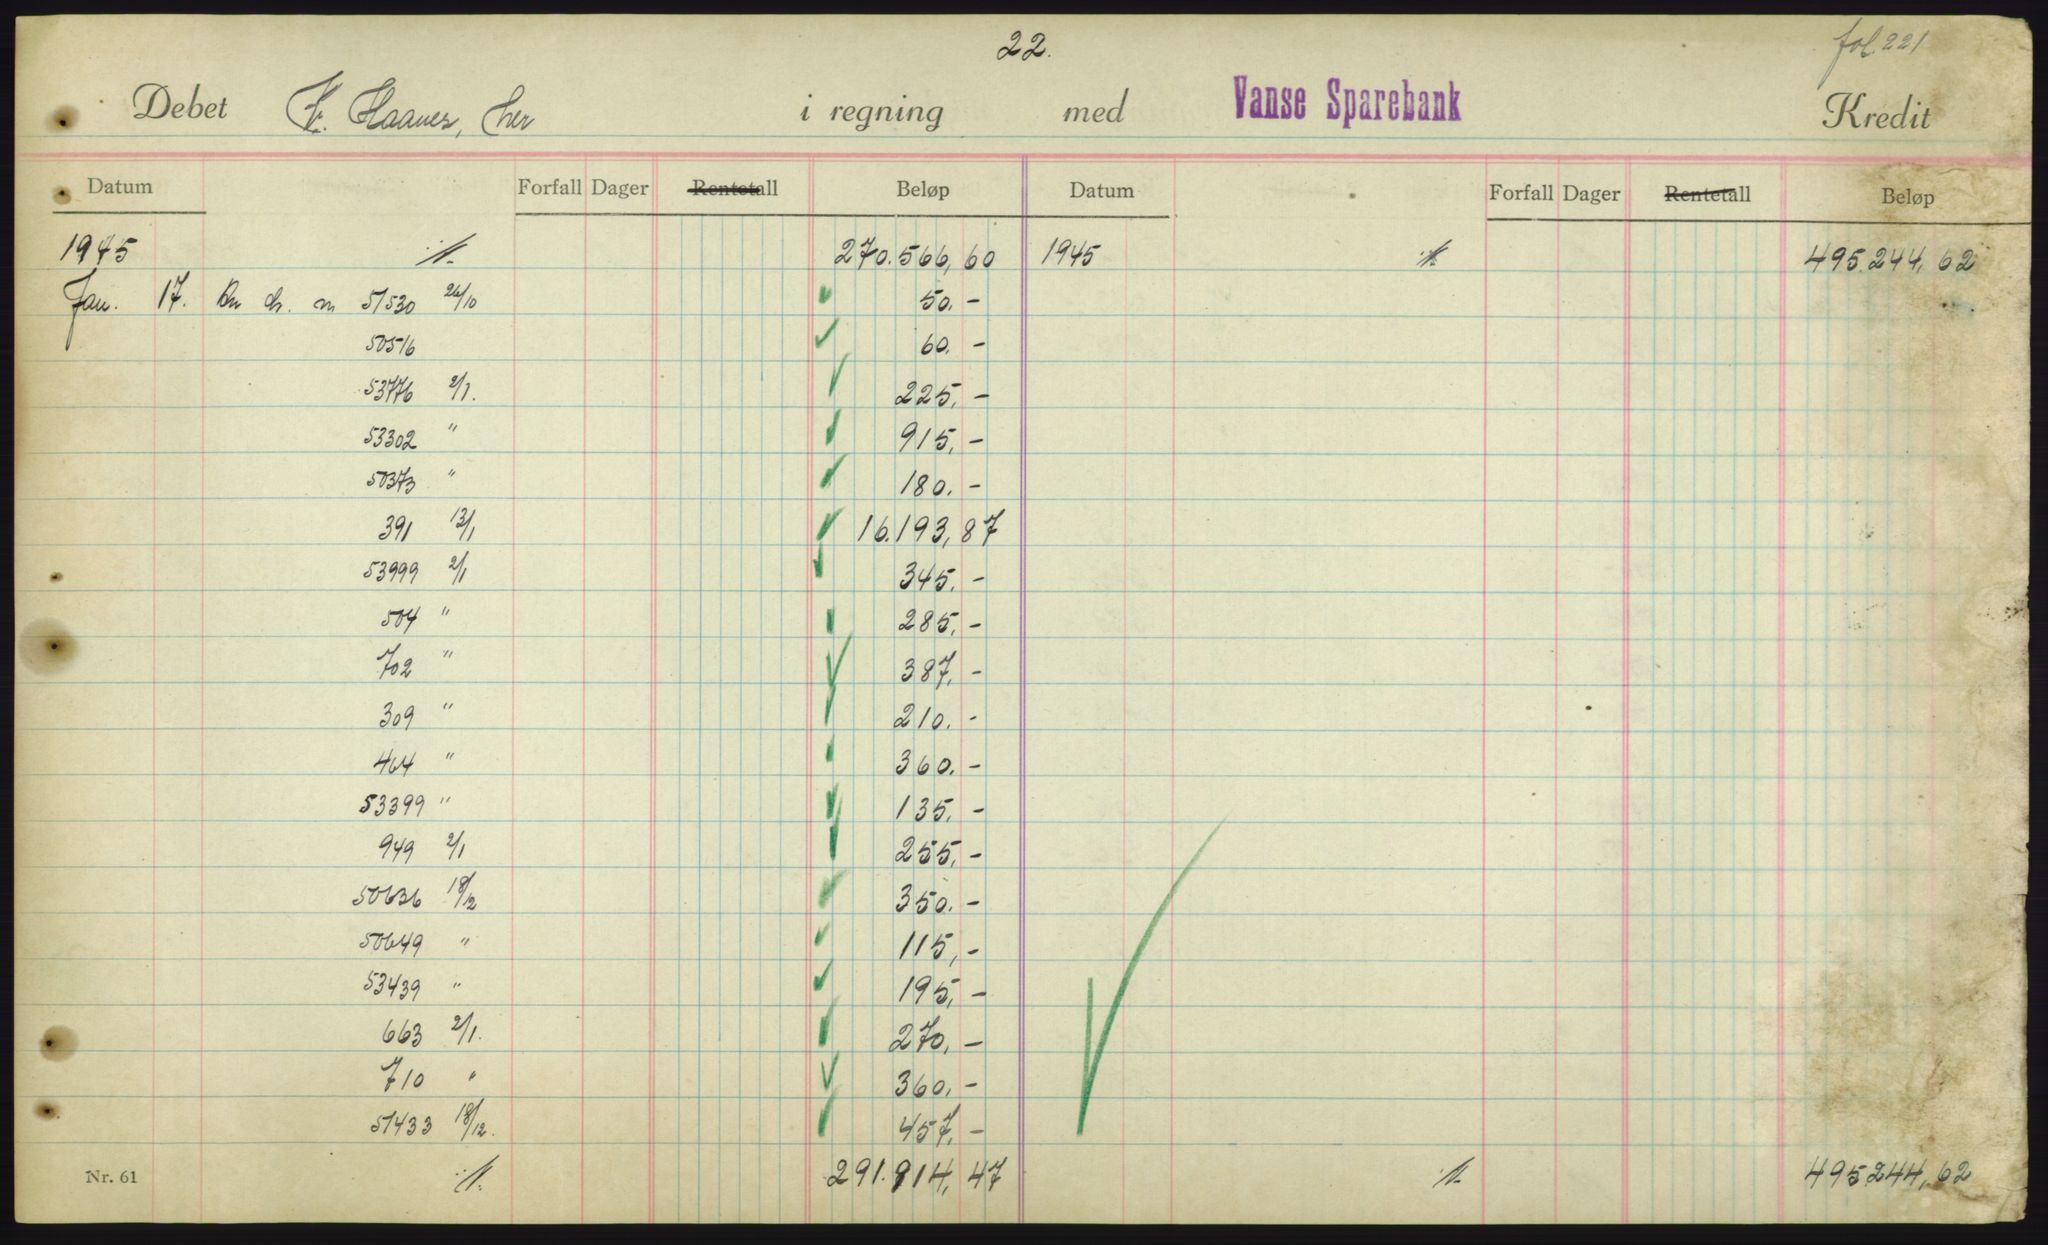 22.
fol. 221
Debet K. Haanes, her i regning med Vanse Sparebank Kredit
Datum Forfall Dager Rentetall Beløp Datum Forfall Dager Rentetall Beløp
1945 270.566,60 1945 495.244,62
Jan. 17. 51530 26/10 50.-
50516 60.-
53776 2/1. 225,-
53302 " 915,-
50373 " 180.-
391 13/1 16.193,87
53999 2/1 345,-
504 " 285,-
702 " 387,-
309 " 210.-
464 " 360.-
53399 " 135,-
949 2/1 255,-
50636 18/12 350.-
50649 " 115,-
53439 " 195,-
663 2/1. 270,-
710 " 360,-
51433 18/12. 457,-
Nr. 61 291.914,47 495.244,62